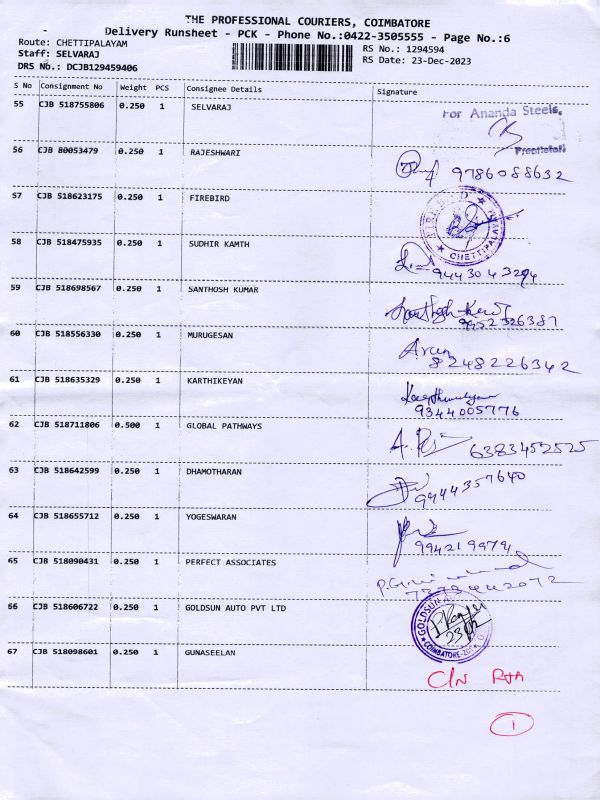 THE PROFESSIONAL COURIERS, COIMBATORE
Delivery Runsheet - PCK - Phone No.:0422-3505555 - Page No.:6
Route: CHETTIPALAYAM
RS No.: 1294594
Staff: SELVARAJ
RS Date: 23-Dec-2023
DRS No.: DCJB129459406
S No Consignment No Weight PCS Consignee Details Signature
55 CJB 518755806 0.250 1 SELVARAJ
For Ananda Steels,
56 CJB 80053479 0.250 1 RAJESHWARI
9786088632
57 CJB 518623175 0.250 1 FIREBIRD
CHETTIPALAYAM
58 CJB 518475935 0.250 1 SUDHIR KAMTH
9443043294
59 CJB 518698567 0.250 1 SANTHOSH KUMAR
Santhosh
60 CJB 518556330 0.250 1 MURUGESAN
Arun
8248226342
61 CJB 518635329 0.250 1 KARTHIKEYAN
9344005776
62 CJB 518711806 0.500 1 GLOBAL PATHWAYS
6383452525
63 CJB 518642599 0.250 1 DHAMOTHARAN
9444357640
64 CJB 518655712 0.250 1 YOGESWARAN
65 CJB 518090431 0.250 1 PERFECT ASSOCIATES
66 CJB 518606722 0.250 1 GOLDSUN AUTO PVT LTD
GOLDSUN
COIMBATORE
67 CJB 518098601 0.250 1 GUNASEELAN
1